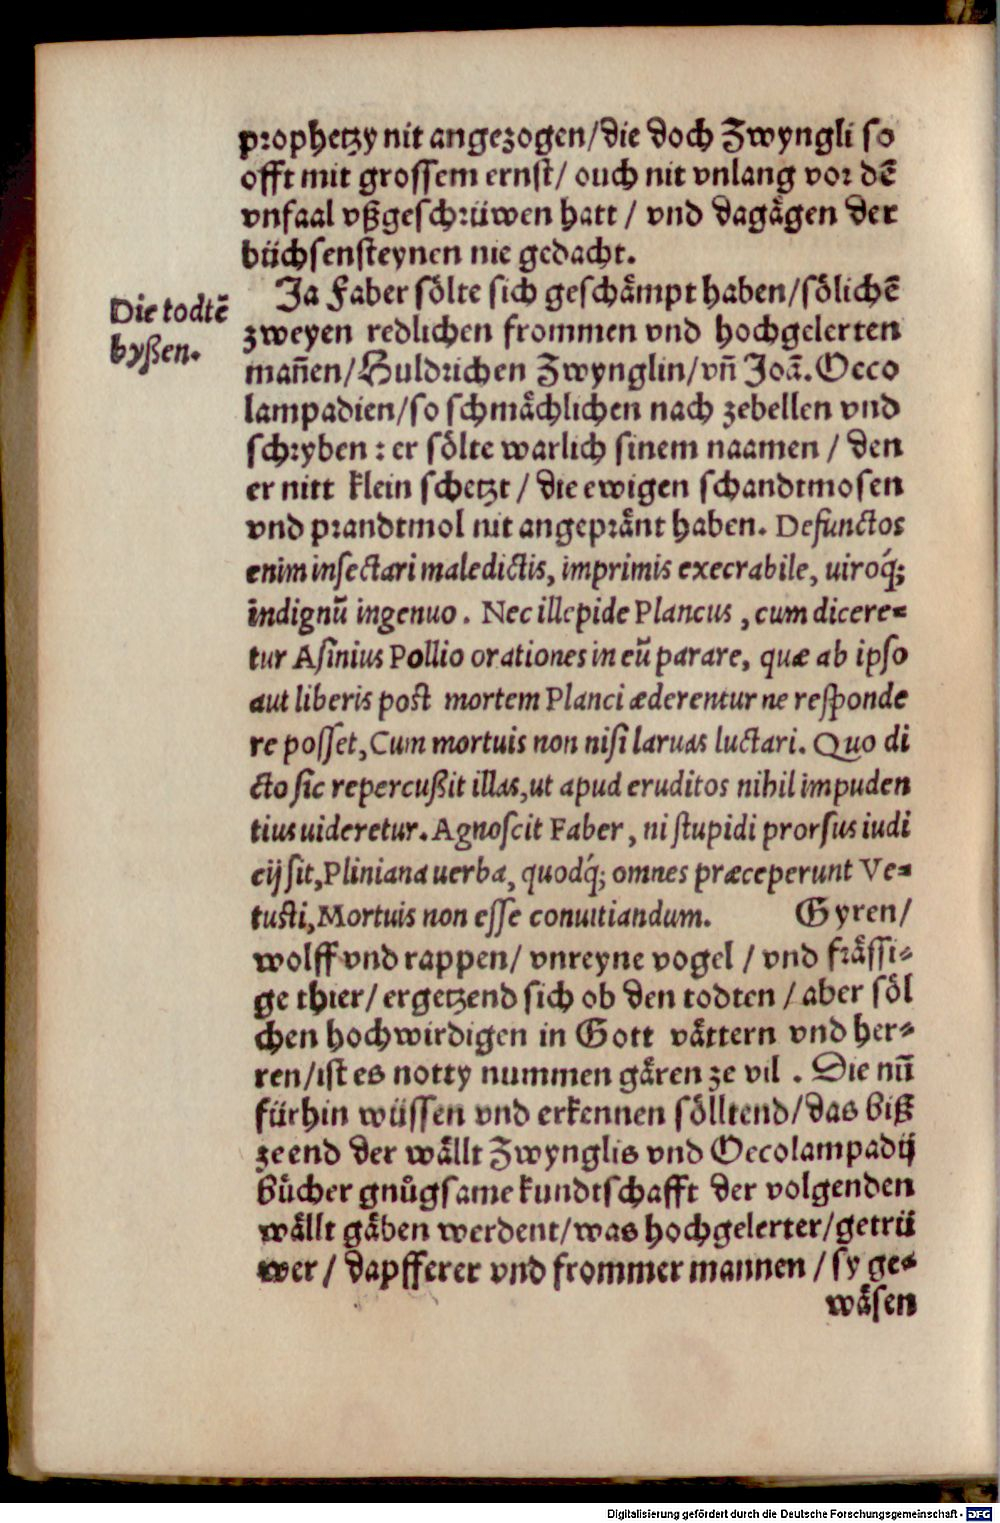 prophetzy nit angezogen/die doch Zwyngli so
offt mit grossem ernst/ ouch nit vnlang vor dē
vnfaal vßgeschrüwen hatt / vnd dagågen der
büchsensteynen nie gedacht.
Die todtē
byßen.
Ja Faber sölte sich geschåmpt haben/sölichē
zweyen redlichen frommen vnd hochgelerten
mañen/Huldrichen Zwynglin/vñ Joā. Oeco
lampadien/so schmåchlichen nach zebellen vnd
schryben : er sölte warlich sinem naamen / den
er nitt klein schetzt / die ewigen schandtmosen
vnd prandtmol nit angepränt haben. Defunctos
enim insectari maledictis, imprimis execrabile, uiroq́;
indignū ingenuo. Nec illepide Plancus, cum dicere-
tur Asinius Pollio orationes in eū parare, quæ ab ipso
aut liberis post mortem Planci æderentur ne responde
re posset, Cum mortuis non nisi laruas luctari. Quo di
cto sic repercußit illas, ut apud eruditos nihil impuden
tius uideretur. Agnoscit Faber, ni stupidi prorsus iudi
cij sit, Pliniana uerba, quodq́; omnes præceperunt Ve-
tusti, Mortuis non esse conuitiandum. Gyren/
wolff vnd rappen/ vnreyne vogel / vnd fråssi-
ge thier/ ergetzend sich ob den todten / aber söl
chen hochwirdigen in Gott våttern vnd her-
ren/ist es notty nummen gåren ze vil . Die nū
fürhin wüssen vnd erkennen sölltend/das biß
zeend der wållt Zwynglis vnd Oecolampadij
bůcher gnůgsame kundtschafft der volgenden
wållt gåben werdent/was hochgelerter/getrü
wer / dapfferer vnd frommer mannen / sy ge-
wåsen
Digitalisierung gefördert durch die Deutsche Forschungsgemeinschaft - DFG